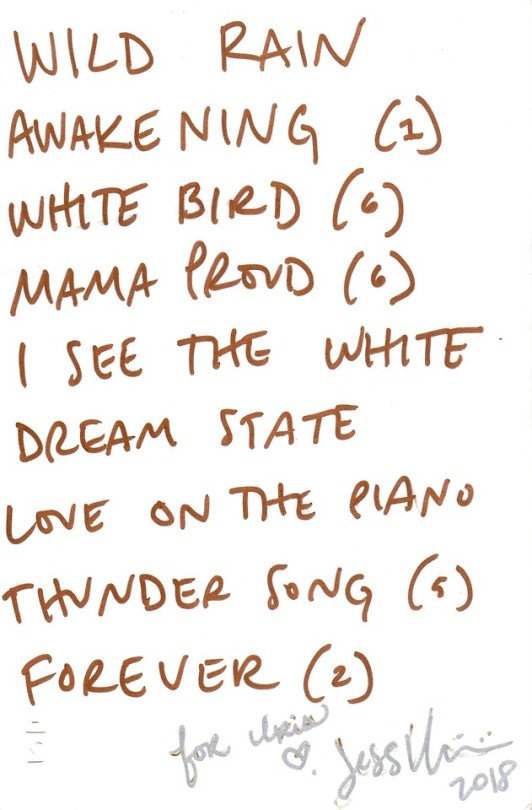 WILD RAIN
AWAKENING (1)
WHITE BIRD (6)
MAMA PROUD (6)
I SEE THE WHITE
DREAM STATE
LOVE ON THE PIANO
THUNDER SONG (5)
FOREVER (2)
for
Jess
2018